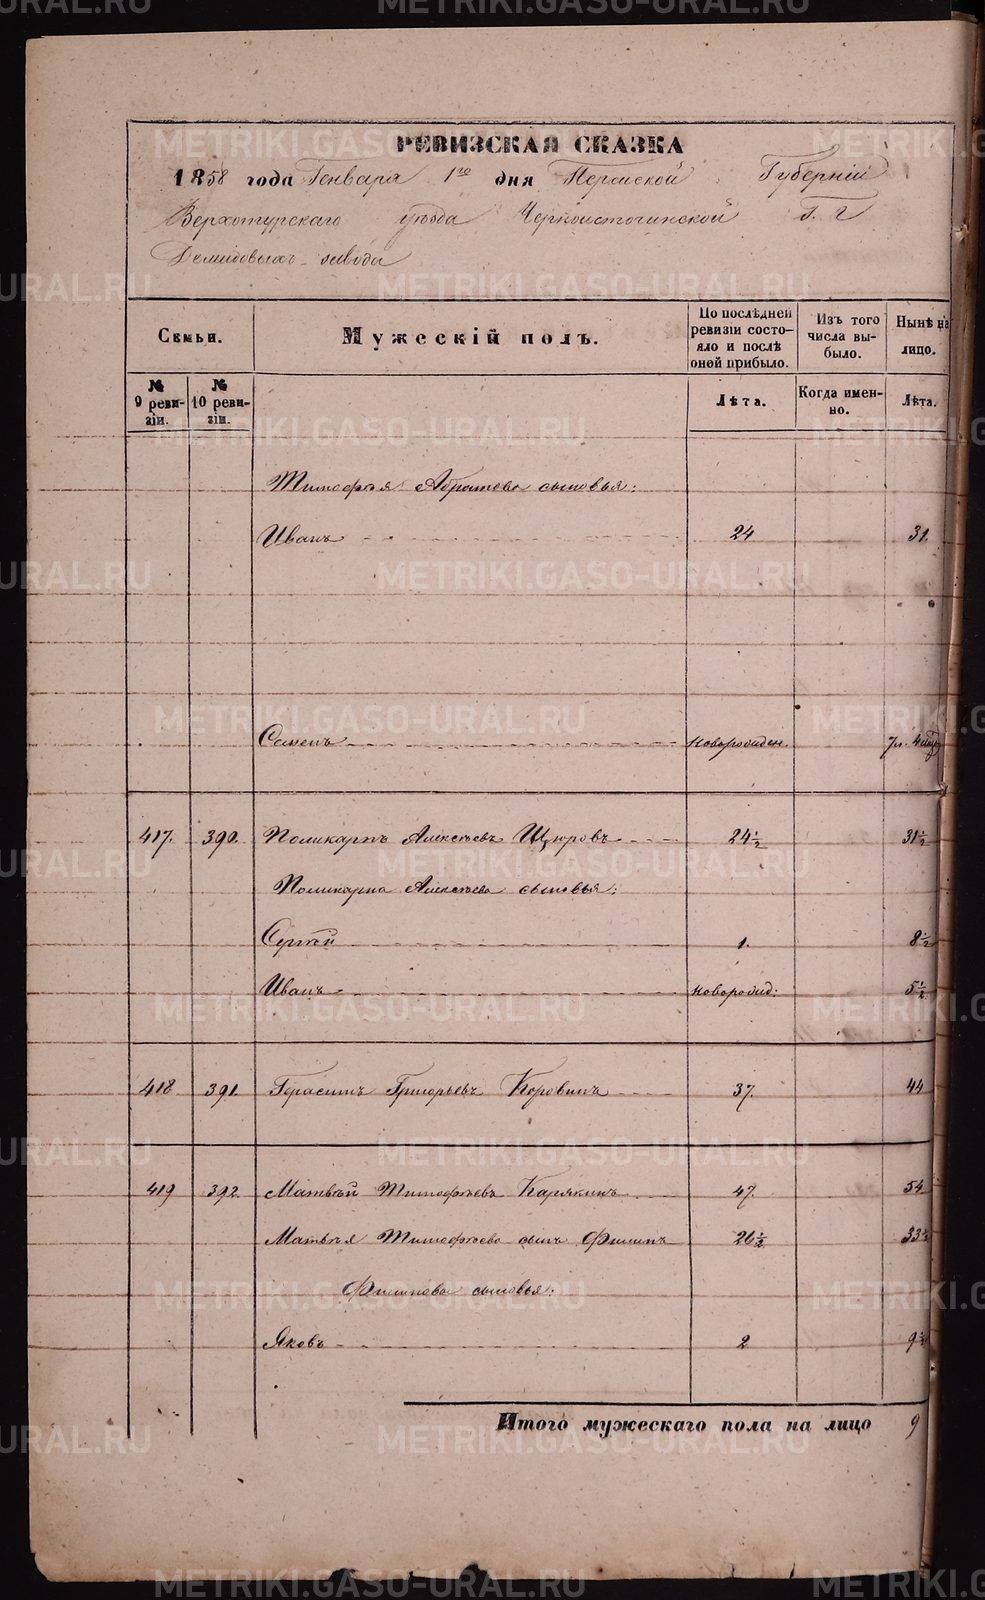 РЕВИЗСКАЯ СКАЗКА
1858 года Генваря 1го дня Пермской Губернiи
Верхотурскаго уѣзда Черноисточинской Г. Г
Демидовыхъ завода
Семьи.
Мужескiй полъ.
По послѣдней ревизiи состояло и послѣ оной прибыло.
Изъ того числа выбыло.
Нынѣ на лицо.
№ 9 ревизiи.
№ 10 ревизiи.
Лѣта.
Когда именно.
Лѣта.
Тимофѣя сыновья:
Иванъ 24 31.
Семенъ новорожден. 7 л. 4
417. 390. Поликарпъ Алексѣевъ Щюровъ 24½ 31½
Поликарпа Алексѣева сыновья:
Сергѣй 1. 8½
Иванъ новорожд: 5½
418 391. Герасимъ Григорьевъ Коровинъ 37. 44
419 392. Матвѣй Тимофѣевъ Карякинъ 47. 54
Матвѣя Тимофѣева сынъ Филипъ 26½ 33½
Филипова сыновья:
Яковъ 2 9½
Итого мужескаго пола на лицо 9
METRIKI.GASO-URAL.RU